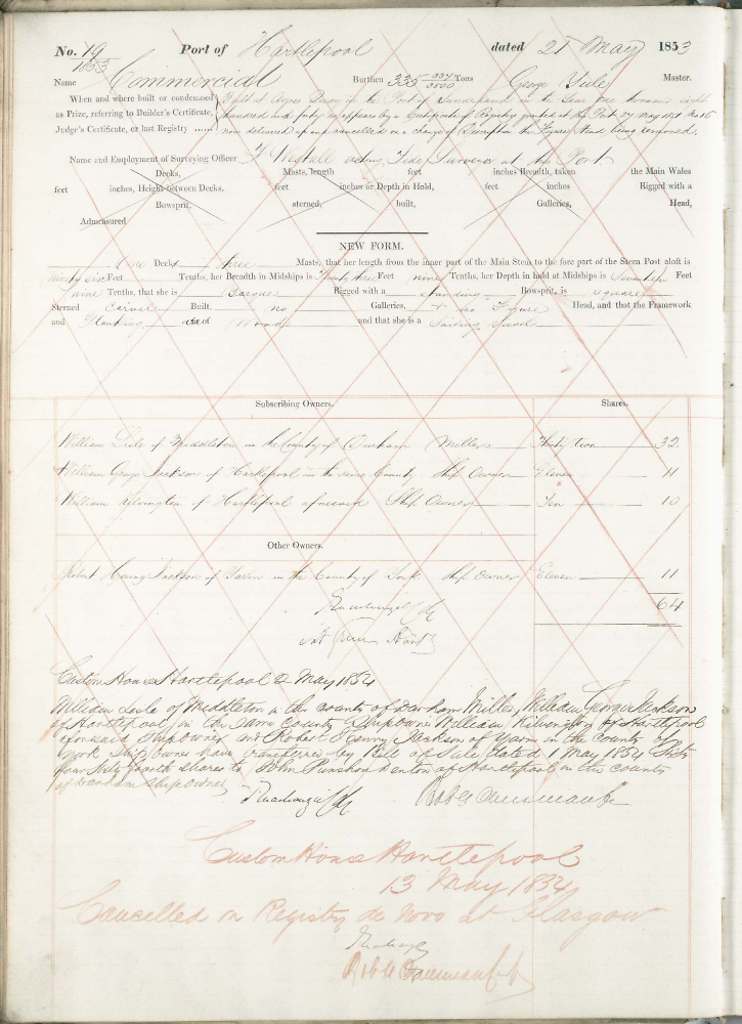 No. 19 Port of Hartlepool dated 21 May 1853
1853
Name Commercial Burthen 335 Tons George Yule Master.
When and where built or condemned
as Prize, referring to Builder's Certificate, in the Port of Sunderland in the Year one thousand eight
Judge's Certificate, or last Registry hundred and forty as appears by a Certificate of Registry granted at this Port
now delivered up and cancelled on a change of Description the Figure Head being removed.
Name and Employment of Surveying Officer Tide Surveyor at this Port
Decks, Masts, length feet inches Breadth, taken the Main Wales
feet inches, Height between Decks. feet inches or Depth in Hold, feet inches Rigged with a
Bowsprit, sterned, built, Galleries, Head,
Admeasured
NEW FORM.
One Decks three Masts, that her length from the inner part of the Main Stem to the fore part of the Stern Post aloft is
ninety six Feet Tenths, her Breadth in Midships is Feet nine Tenths, her Depth in hold at Midships is Feet
nine Tenths, that she is Barque Rigged with a standing Bowsprit, is square
Sterned Carvel Built no Galleries, no Figure Head, and that the Framework
and Planking Wood and that she is a Sailing Vessel
Subscribing Owners. Shares.
William Lisle of Middleton in the County of Durham Miller Thirty Two 32
William George Jackson of Hartlepool in the same County Ship Owner Eleven 11
William Kilvington of Hartlepool aforesaid Ship Owner Ten 10
Other Owners.
Robert Henry Jackson of Yarm in the County of York Ship Owner Eleven 11
64
Custom House Hartlepool 2 May 1854
William Lisle of Middleton in the county of Durham Miller, William George Jackson
of Hartlepool in the same County Shipowner William Kilvington of Hartlepool
aforesaid Shipowner and Robert Henry Jackson of Yarm in the county of
York Ship Owner have transferred by Bill of Sale dated 1 May 1854 Sixty
four sixty fourth shares to John Punshon Denton of Hartlepool in the county
of Durham Ship Owner
Custom House Hartlepool
13 May 1854
Cancelled on Registry de novo at Glasgow